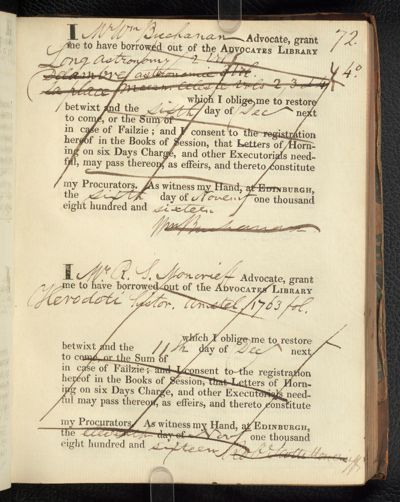 72.
I Mr Wm Buchanan Advocate, grant
me to have borrowed out of the ADVOCATES LIBRARY
Long astronomy 2 vol
4º
which I oblige me to restore
betwixt and the sixth day of Dec next
to come, or the Sum of
in case of Failzie; and I consent to the registration
hereof in the Books of Session, that Letters of Horn-
ing on six Days Charge, and other Executorials need-
ful, may pass thereon, as effeirs, and thereto constitute
my Procurators. As witness my Hand, at EDINBURGH,
the sixth day of Novemr one thousand
eight hundred and sixteen
Wm Buchanan
I Mr R. S. Moncrief Advocate, grant
me to have borrowed out of the ADVOCATES LIBRARY
Herodoti histor. Amstel. 1763 fol.
which I oblige me to restore
betwixt and the 11th day of Dec next
to come, or the Sum of
in case of Failzie; and I consent to the registration
hereof in the Books of Session, that Letters of Horn-
ing on six Days Charge, and other Executorials need-
ful may pass thereon, as effeirs, and thereto constitute
my Procurators. As witness my Hand, at EDINBURGH,
the eleventh day of Novr one thousand
eight hundred and sixteen Robt Scott Moncrieff